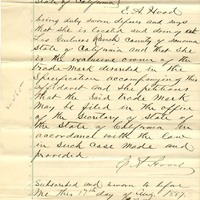 State of California
E. A. Hood
being duly sworn deposes and says
that She is located and doing
County of Sonoma
State of California and that She
is the exclusive owner of the
trade-mark described in the
Specification accompanying this
affidavit and She petitions
that the Said trade mark
May be filed in the office
of the Secretary of State
of the State of California in
accordance with the Law
in Such Case Made and
provided
E. A. Hood
Subscribed and sworn to before
Me this 17th day of Aug.